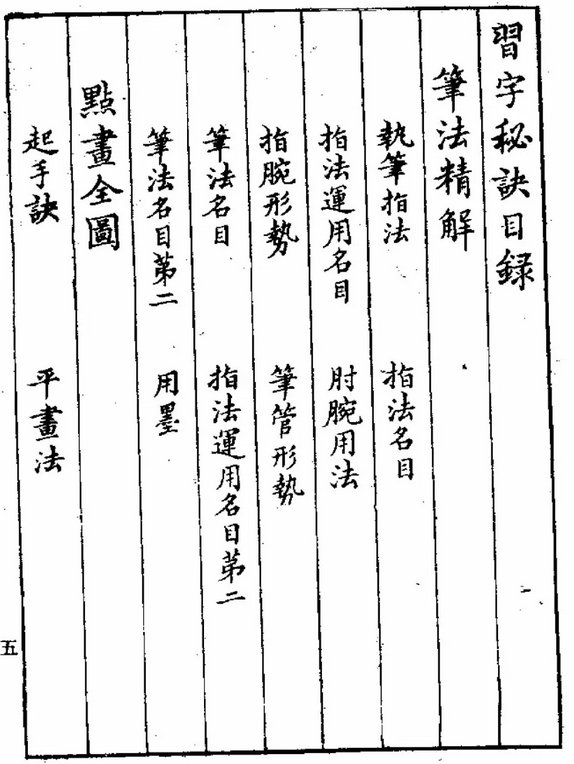 習字秘訣目錄
筆法精解
執筆指法　指法名目
指法運用名目　肘腕用法
指腕形勢　筆管形勢
筆法名目　指法運用名目第二
筆法名目第二　用墨
點畫全圖
起手訣　平畫法
五